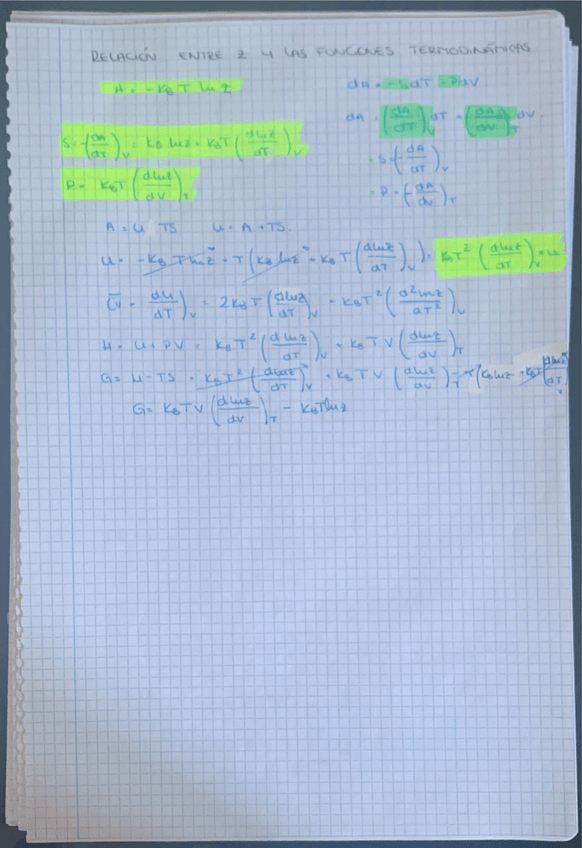 RELACIÓN ENTRE Z Y LAS FUNCIONES TERMODINÁMICAS
A = -K_B T ln Z
dA = -SdT - PdV
dA = (dA/dT)_V dT + (dA/dV)_T dV
S = -(dA/dT)_V = K_B ln Z + K_B T (d ln Z/dT)_V
S = -(dA/dT)_V
P = K_B T (d ln Z/dV)_T
P = -(dA/dV)_T
A = U - TS U = A + TS.
U = -K_B T ln Z + T(K_B ln Z + K_B T (d ln Z/dT)_V) = K_B T² (d ln Z/dT)_V = U
C_V = dU/dT)_V = 2K_B T (d ln Z/dT)_V + K_B T² (d² ln Z/dT²)_V
H = U + PV = K_B T² (d ln Z/dT)_V + K_B T V (d ln Z/dV)_T
G = H - TS = K_B T² (d ln Z/dT)_V + K_B T V (d ln Z/dV)_T - T(K_B ln Z + K_B T (d ln Z/dT)_V
G = K_B T V (d ln Z/dV)_T - K_B T ln Z